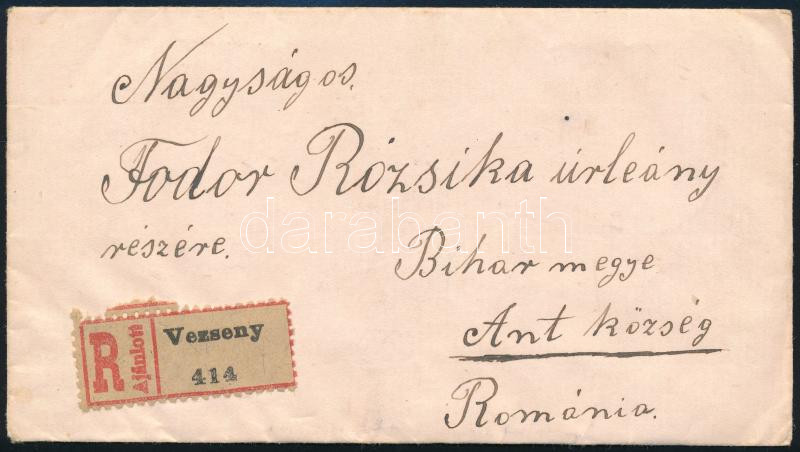 Nagyságos.
Fodor Rózsika úrleány
részére.
Bihar megye
Ant község
Románia.
R Ajánlott
Vezseny
414
darabanth